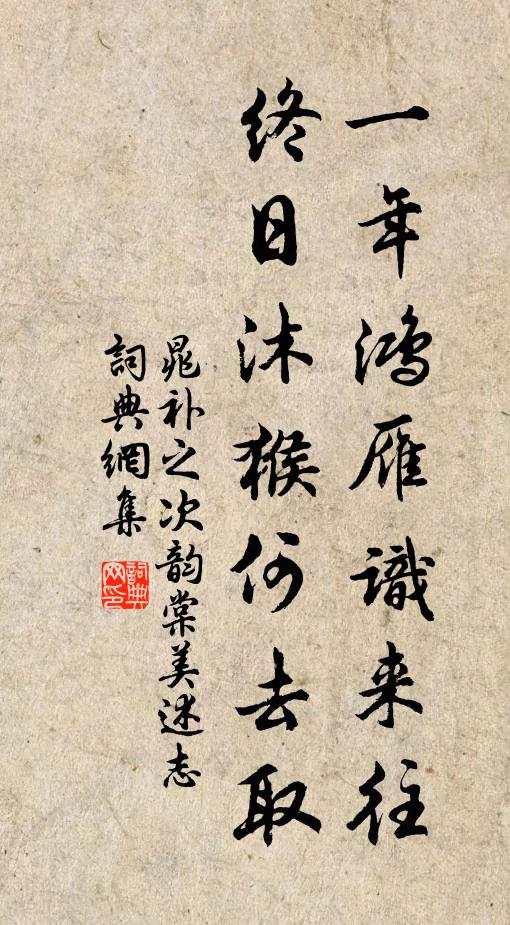 一年鸿雁識来往
终日沐猴何去取
晁补之次韵棠美述志
詞典網集
詞典网印